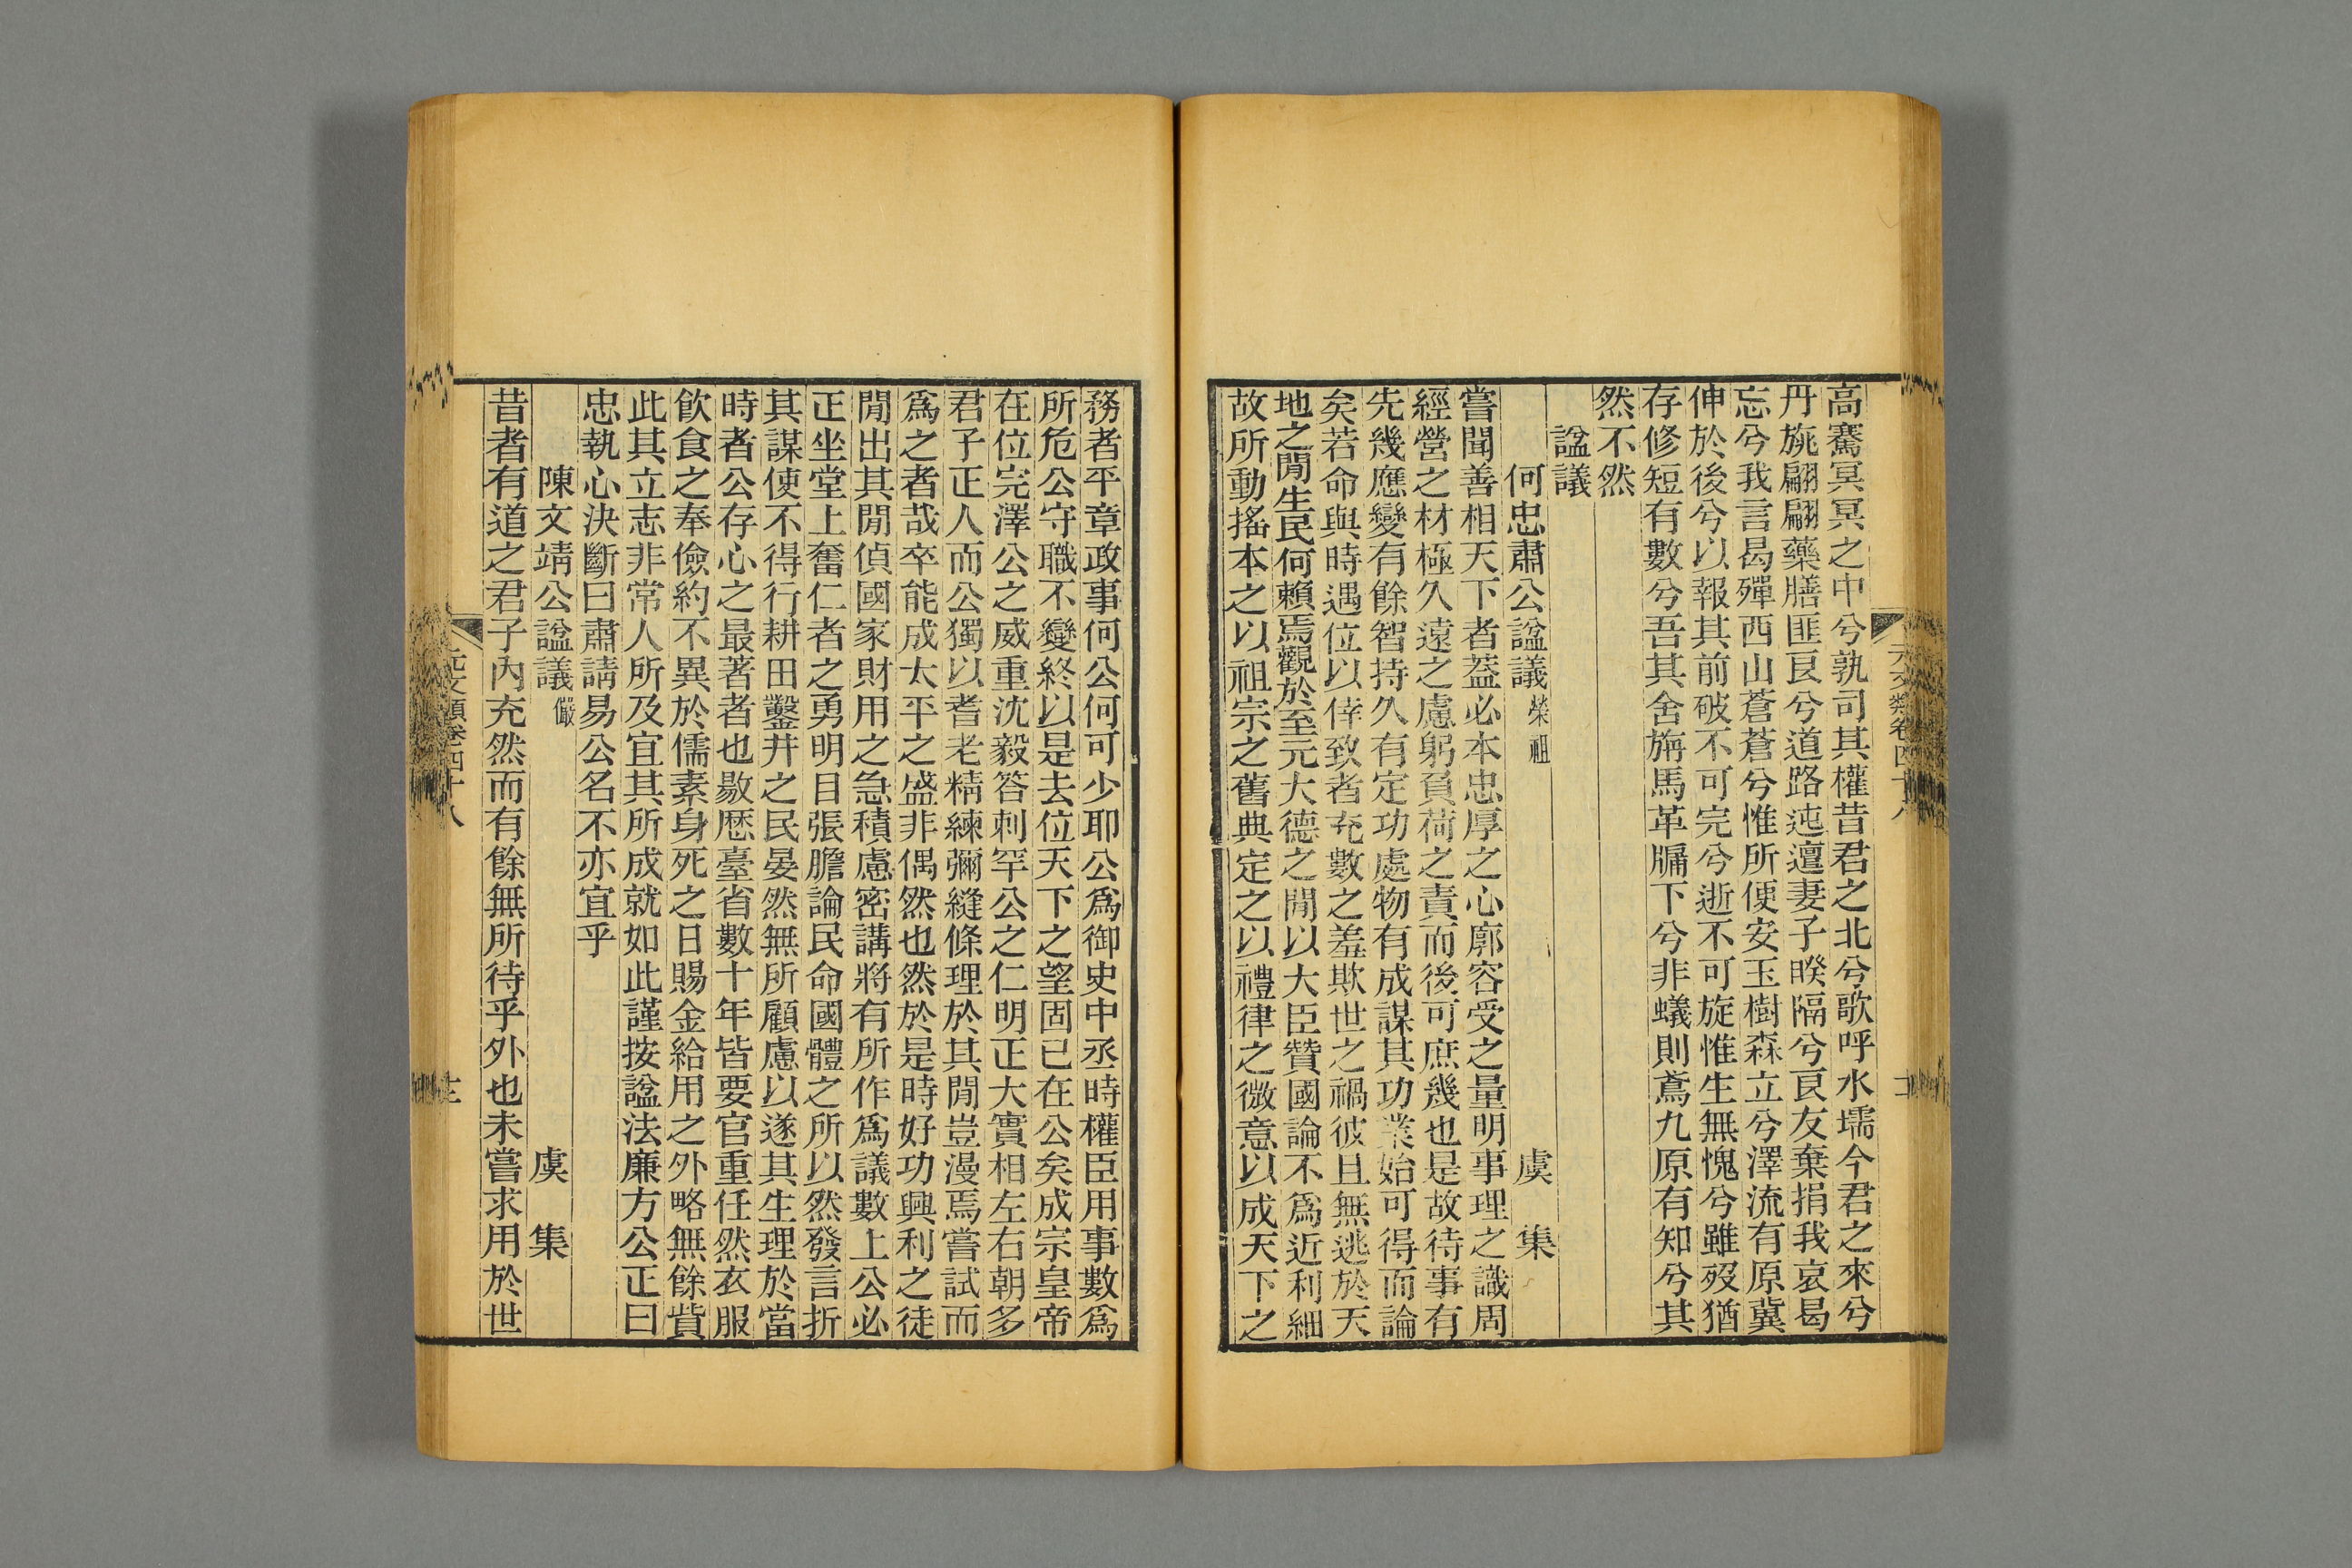 高騫冥冥之中兮孰司其權昔君之北兮歌呼水壖今君之來兮
丹旐翩翩藥膳匪良兮道路迍邅妻子暌隔兮良友棄捐我哀曷
忘兮我言曷殫西山蒼蒼兮惟所便安玉樹森立兮澤流有原冀
伸於後兮以報其前破不可完兮逝不可旋惟生無愧兮雖歿猶
存修短有數兮吾其舍旃馬革牖下兮非蟻則鳶九原有知兮其
然不然
諡議
何忠肅公諡議 榮祖 虞 集
嘗聞善相天下者葢必本忠厚之心廓容受之量明事理之識周
經營之材極久遠之慮躬負荷之責而後可庶幾也是故待事有
先幾應變有餘智持久有定功處物有成謀其功業始可得而論
矣若命與時遇位以倖致者充數之羞欺世之禍彼且無逃於天
地之閒生民何賴焉觀於至元大德之閒以大臣贊國論不爲近利細
故所動搖本之以祖宗之舊典定之以禮律之微意以成天下之
元文類卷四十八
務者平章政事何公何可少耶公爲御史中丞時權臣用事數爲
所危公守職不變終以是去位天下之望固已在公矣成宗皇帝
在位完澤公之威重沈毅答剌罕公之仁明正大實相左右朝多
君子正人而公獨以耆老精練彌縫條理於其閒豈漫焉嘗試而
爲之者哉卒能成太平之盛非偶然也然於是時好功興利之徒
閒出其閒偵國家財用之急積慮密講將有所作爲議數上公必
正坐堂上奮仁者之勇明目張膽論民命國體之所以然發言折
其謀使不得行耕田鑿井之民晏然無所顧慮以遂其生理於當
時者公存心之最著者也敭歷臺省數十年皆要官重任然衣服
飮食之奉儉約不異於儒素身死之日賜金給用之外略無餘貲
此其立志非常人所及宜其所成就如此謹按諡法廉方公正曰
忠執心決斷曰肅請易公名不亦宜乎
陳文靖公諡議 儼 虞 集
昔者有道之君子內充然而有餘無所待乎外也未嘗求用於世
元文類卷四十八